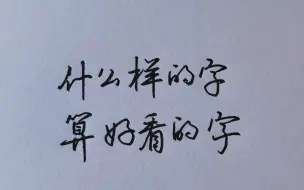 什么样的字
算好看的字